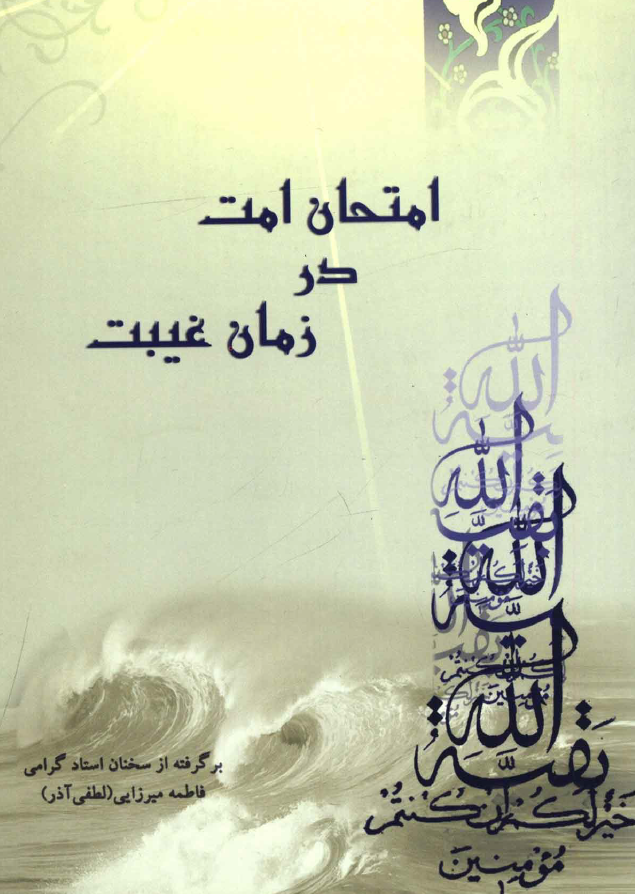 امتحان امت
در
زمان غیبت
بقیة الله
خیر لکم ان کنتم
مؤمنین
برگرفته از سخنان استاد گرامی
فاطمه میرزایی (لطفی آذر)